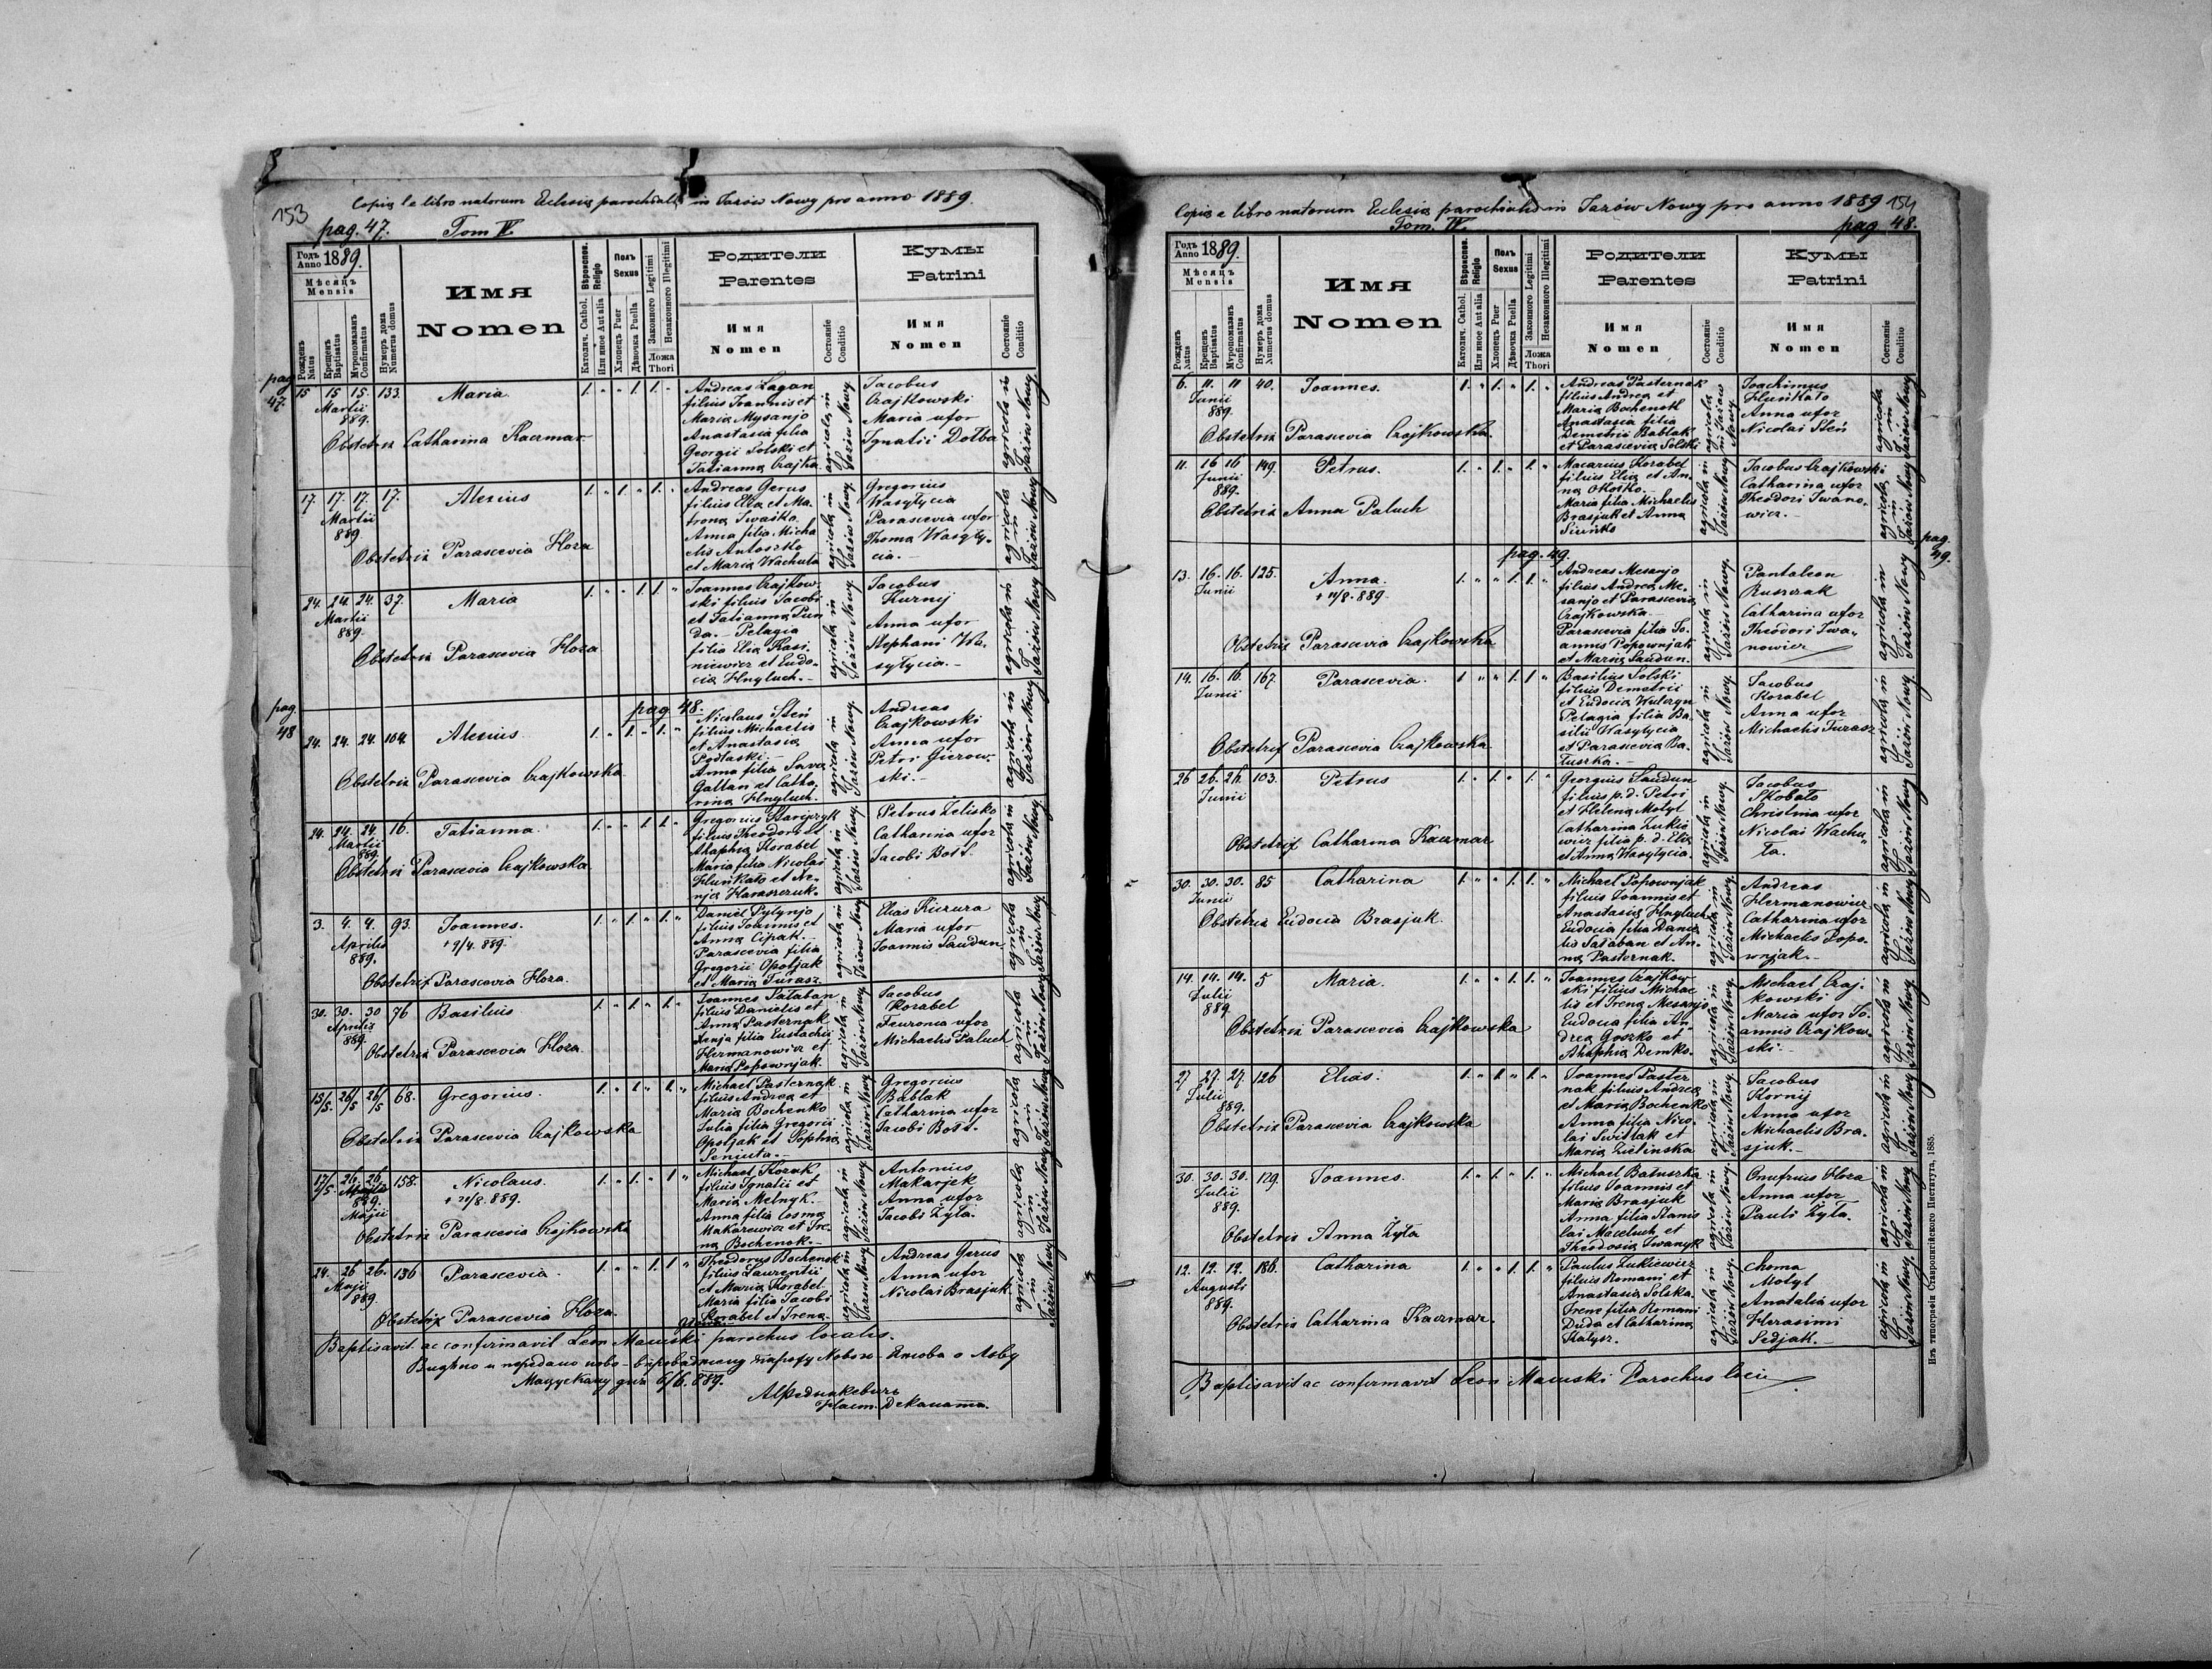 153
Copia e libro natorum Eclesiæ parochialis in Jazów Nowy pro anno 1889.
pag. 47. Tom IV.
Годъ Anno 1889.
Мѣсяцъ Mensis
Рожденъ Natus
Крещенъ Baptisatus
Муропомазанъ Confirmatus
Нумеръ дома Numerus domus
Имя Nomen
Вѣроиспов. Religio
Католич. Cathol.
Или иное Aut alia
Полъ Sexus
Хлопецъ Puer
Дѣвочка Puella
Законного Legitimi
Незаконного Illegitimi
Ложа Thori
Родители Parentes
Имя Nomen
Состояніе Conditio
Кумы Patrini
Имя Nomen
Состояніе Conditio
pag. 47.
15 15 15. 133. Maria 1. " " 1. 1. "
Martii
889.
Obstetrix Catharina Kaczmar
Andreas Łagan
filius Joannis et
Maria Mysanjo
Anastasia filia
Georgii Solski et
Tatianna Czajka
agricola in Jazów Nowy.
Jacobus
Czajkowski
Maria uxor
Ignatii Dołba
agricola in Jazów Nowy
17. 17. 17. 17. Alexius 1. " 1. " 1. "
Martii
889.
Obstetrix Parascevia Hora
Andreas Gerus
filius Eliæ et Ma-
trona Iwaśko
Anna filia Micha
elis Antoszko
et Maria Wachuta
agricola in Jazów Nowy.
Gregorius
Wasyłycia
Parascevia uxor
Thoma Wasyły-
cia. -
agricola in Jazów Nowy
24. 24. 24. 37. Maria 1. " " 1. 1. "
Martii
889.
Obstetrix Parascevia Hora
Joannes Czajkow-
ski filius Jacobi
et Tatianna Pun
da. - Pelagia
filia Eliæ Kasi-
niewicz et Eudo-
cia Hnyluch. -
agricola in Jazów Nowy.
Jacobus
Kurnij
Anna uxor
Stephani Wa-
syłycia. -
agricola in Jazów Nowy
pag. 48
pag. 48.
24. 24. 24. 104. Alexius 1. " 1. " 1. "
Obstetrix Parascevia Czajkowska
Nicolaus Steń
filius Michaelis
et Anastasia
Podlaski. -
Anna filia Sava
Gałłan et Catha-
rina Hnyluch.
agricola in Jazów Nowy.
Andreas
Czajkowski
Anna uxor
Petri Gierow-
ski. -
agricola in Jazów Nowy
24. 24. 24. 16. Tatianna. 1. " " 1. 1. "
Martii
889.
Obstetrix Parascevia Czajkowska
filius Theodori et
Ahaphia Korabel
Maria filia Nicolai
agricola in Jazów Nowy.
Petrus Zelisko
Catharina uxor
Jacobi Bott.
agricola in Jazów Nowy.
3. 4. 4. 93. Joannes. 1. " 1. " 1. "
Aprilis
889.
+ 9/4. 889.
Obstetrix Parascevia Hora.
Daniel Pyłynjo
filius Joannis et
Anna Cipak. -
Parascevia filia
Gregorii Opotjak
et Maria Turasz.
agricola in Jazów Nowy
Elias Kiczura
Maria uxor
Joannis Saudun
agricola in Jazów Nowy
30. 30. 30 76 Basilius 1. " 1. " 1. "
Aprilis
889.
Obstetrix Parascevia Hora
Joannes Sałaban
filius Danielis et
Anna Pasternak
Xenja filia Eustachii
Hermanowicz et
Maria Popownjak.
agricola in Jazów Nowy.
Jacobus
Korabel
Feuronia uxor
Michaelis Paluch
agricola in Jazów Nowy
15/5. 26/5 26/5 68. Gregorius. 1. " 1. " 1. "
Obstetrix Parascevia Czajkowska
Michael Pasternak
filius Andrea et
Maria Bochenko
Julia filia Gregorii
Opotjak et Sophia
Seniuta. -
agricola in Jazów Nowy
Gregorius
Bablak
Catharina uxor
Jacobi Bott. -
agricola in Jazów Nowy
17/5. 26. 26. 158. Nicolaus. 1. " 1. " 1 "
889.
Majii
+ 21/8. 889.
Obstetrix Parascevia Czajkowska
Michael Kozak
filius Ignatii et
Maria Melnyk. -
Anna filia Cosma
Makarewicz et Ire-
na Bochenok. -
agricola in Jazów Nowy.
Antonius
Makarjek
Anna uxor
Jacobi Żyła.
agricola in Jazów Nowy
24. 26 26. 136 Parascevia. 1. " " 1. 1 "
Maji
889.
Obstetrix Parascevia Hora.
Theodorus Bochenok
filius Laurentii
et Maria Korabel
Maria filia Jacobi
Korabel et Irena
agricola in Jazów Nowy
Andreas Gerus
Anna uxor
Nicolai Brasjuk
agricola in Jazów Nowy
Baptisavit ac confirmavit Leon Macuski parochus localis.
6/6. 889.
Copia e libro natorum Eclesiæ parochialis in Jazów Nowy pro anno 1889 154
Tom. IV. pag. 48.
Годъ Anno 1889.
Мѣсяцъ Mensis
Рожденъ Natus
Крещенъ Baptisatus
Муропомазанъ Confirmatus
Нумеръ дома Numerus domus
Имя Nomen
Вѣроиспов. Religio
Католич. Cathol.
Или иное Aut alia
Полъ Sexus
Хлопецъ Puer
Дѣвочка Puella
Законного Legitimi
Незаконного Illegitimi
Ложа Thori
Родители Parentes
Имя Nomen
Состояніе Conditio
Кумы Patrini
Имя Nomen
Состояніе Conditio
6. 11. 11 40. Joannes. 1. " 1. " 1. "
Junii
889.
Obstetrix Parascevia Czajkowska.
Andreas Pasternak
filius Andrea et
Maria Bochenok
Anastasia filia
Demetrii Bablak
et Parascevia Solski
agricola in Jazów Nowy.
Joachimus
Huńkało
Anna uxor
Nicolai Steń
agricola in Jazów Nowy
11. 16 16 149. Petrus. 1. " 1. " 1. "
Junii
889.
Obstetrix Anna Paluch
Macarius Korabel
filius Eliæ et An-
na Okośko.
Maria filia Michaelis
Brasjuk et Anna
Siuńko
agricola in Jazów Nowy
Jacobus Czajkowski
Catharina uxor
Theodori Iwano-
wicz. -
agricola in Jazów Nowy
pag. 49.
pag. 49.
13. 16. 16. 125. Anna. 1. " " 1. 1. "
Junii
+ 11/8. 889.
Obstetrix Parascevia Czajkowska
Andreas Mesanjo
filius Andrea Me-
sanjo et Parascevia
Czajkowska -
Parascevia filia Jo-
annis Popownjak
et Maria Saudun. -
agricola in Jazów Nowy.
Pantaleon
Ruszczak
Catharina uxor
Theodori Iwa-
nowicz
agricola in Jazów Nowy
14. 16. 16. 167. Parascevia. 1 " " 1. 1 "
Junii
Obstetrix Parascevia Czajkowska
Basilius Solski
filius Demetrii
et Eudocia Wulczyn
Pelagia filia Ba-
silii Wasyłycia
et Parascevia Ba-
łuszka. -
agricola in Jazów Nowy.
Jacobus
Korabel
Anna uxor
Michaelis Turasz
agricola in Jazów Nowy
26 26. 26. 103. Petrus 1. " 1. " 1. "
Junii
Obstetrix Catharina Kaczmar
Georgius Saudun
filius p. d. Petri
et Helena Motyl
Catharina Łukie
wicz filia p. d. Eliæ
et Anna Wasyłycia.
agricola in Jazów Nowy.
Jacobus
Skobało
Christina uxor
Nicolai Wachu-
ta.
agricola in Jazów Nowy
30. 30. 30. 85 Catharina 1. " " 1. 1. "
Junii
Obstetrix Eudocia Brasjuk.
Michael Popownjak
filius Joannis et
Anastasia Hnyluch
Eudocia filia Danie
lis Sałaban et An-
na Pasternak.
agricola in Jazów Nowy.
Andreas
Hermanowicz
Catharina uxor
Michaelis Popo-
wnjak. -
agricola in Jazów Nowy
14. 14. 14. 5 Maria. 1. " " 1. 1. "
Julii
889.
Obstetrix Parascevia Czajkowska
Joannes Czajkow-
ski filius Michae
lis et Irena Mesanjo
Eudocia filia An-
drea Goszko et
Ahaphia Demko.
agricola in Jazów Nowy.
Michael Czaj-
kowski
Maria uxor Jo-
annis Czajkow-
ski. -
agricola in Jazów Nowy
27 27. 27. 126 Elias. 1. " 1. " 1. "
Julii
889.
Obstetrix Parascevia Czajkowska
Joannes Paster
nak filius Andrea
et Maria Bochenko
Anna filia Nico-
lai Switlak et
Maria Zielinska
agricola in Jazów Nowy.
Jacobus
Kornij
Anna uxor
Michaelis Bra-
sjuk. -
agricola in Jazów Nowy
30. 30. 30. 129. Joannes. 1. " 1. " 1. "
Julii
889.
Obstetrix Anna Żyła
Michael Bałuszka
filius Joannis et
Maria Brasjuk
Anna filia Stanis
lai Maceluch et
Theodosia Iwanyk
agricola in Jazów Nowy.
Onufrius Hora
Anna uxor
Pauli Żyła.
agricola in Jazów Nowy
12. 12. 12. 186. Catharina 1. " " 1. 1. "
Augusti
889.
Obstetrix Catharina Kaczmar.
Paulus Łukiewicz
filius Romani et
Anastasia Solska.
Irene filia Romani
Duda et Catharina
Kałysz.
agricola in Jazów Nowy.
Choma
Motyl
Anatalia uxor
Herasimi
Sedjak. -
agricola in Jazów Nowy.
Baptisavit ac confirmavit Leon Macuski Parochus loci
Изъ типографіи Ставропигійского Института, 1885.